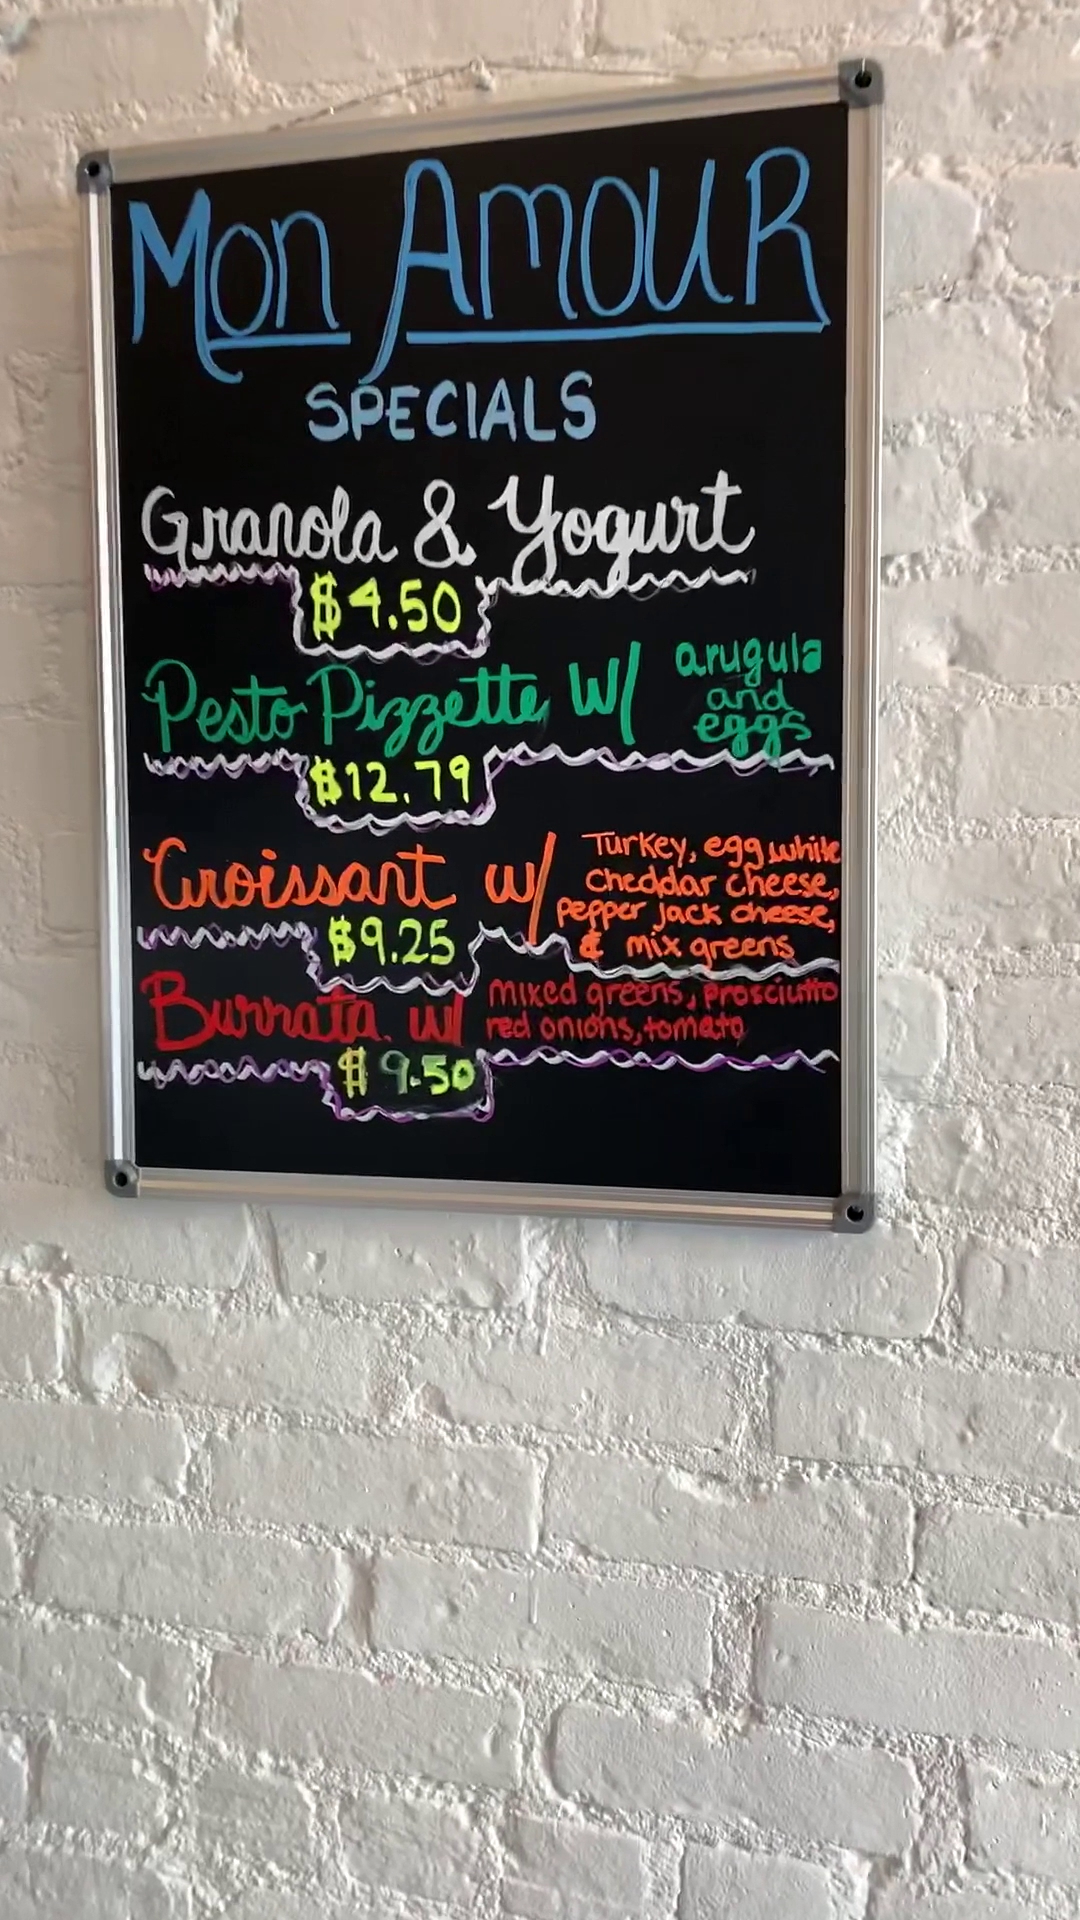 Mon Amour
SPECIALS
Granola & Yogurt
$4.50
Pesto Pizzette w/ arugula
and
eggs
$12.79
Croissant w/ Turkey, egg white
cheddar cheese,
pepper jack cheese,
& mix greens
$9.25
Burrata w/ mixed greens, prosciutto
red onions, tomato
$9.50